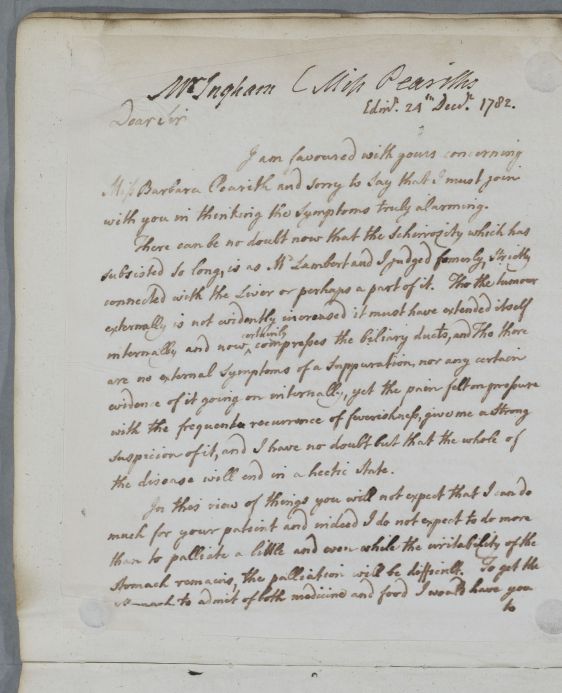 Mr. Ingham (Miss Peariths
Edinr. 24th Decr. 1782.
Dear Sir
I am favoured with yours concerning
Miss Barbara Pearith and sorry to say that I must join
with you in thinking the symptoms truly alarming.
There can be no doubt now that the Scherrosity which has
subsisted so long, is as Mr Lambert and I judged formerly, strictly
connected with the Liver or perhaps a part of it. Tho the tumour
externally is not evidently increased it must have extended itself
internally and now certainly compresses the biliary ducts, and Tho there
are no external symptoms of a Suppuration, nor any certain
evidence of it going on internally, yet the pain felt on pressure
with the frequent recurrence of feverishness, give me a strong
suspicion of it, and I have no doubt but that the whole of
the disease will end in a hectic state.
In this view of things you will not expect that I can do
much for your patient and indeed I do not expect to do more
than to palliate a little and even while the irritability of the
stomach remains, the palliation will be difficult. To get the
stomach to admit of both medicine and food I would have you
to